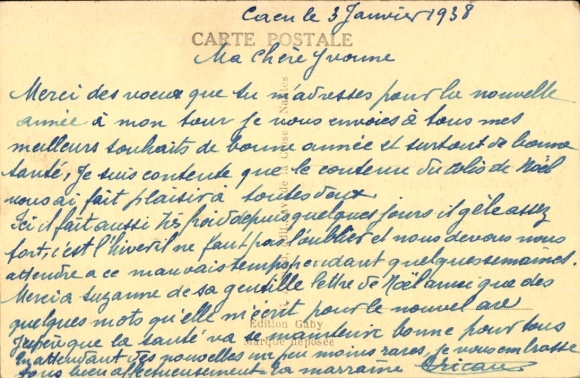 Caen le 3 Janvier 1938
CARTE POSTALE
Ma Chère Yvonne
Merci des voeux que tu m'adresses pour la nouvelle
année à mon tour je vous envoies à tous mes
meilleurs souhaits de bonne année et surtout de bonne
santé, je suis contente que le contenu du colis de Noël
vous ai fait plaisir à toutes deux
Ici il fait aussi très froid depuis quelques jours il gèle assez
fort, c'est l'hiver il ne faut pas l'oublier et nous devons nous
attendre a ce mauvais temps pendant quelques semaines.
Merci a Suzanne de sa gentille lettre de Noël ainsi que des
quelques mots qu'elle m'écrit pour le nouvel an
Edition Gaby
J'espère que la santé va se maintenir bonne pour tous
Marque déposée
En attendant des nouvelles un peu moins rares, je vous embrasse
tous bien affectueusement la marraine